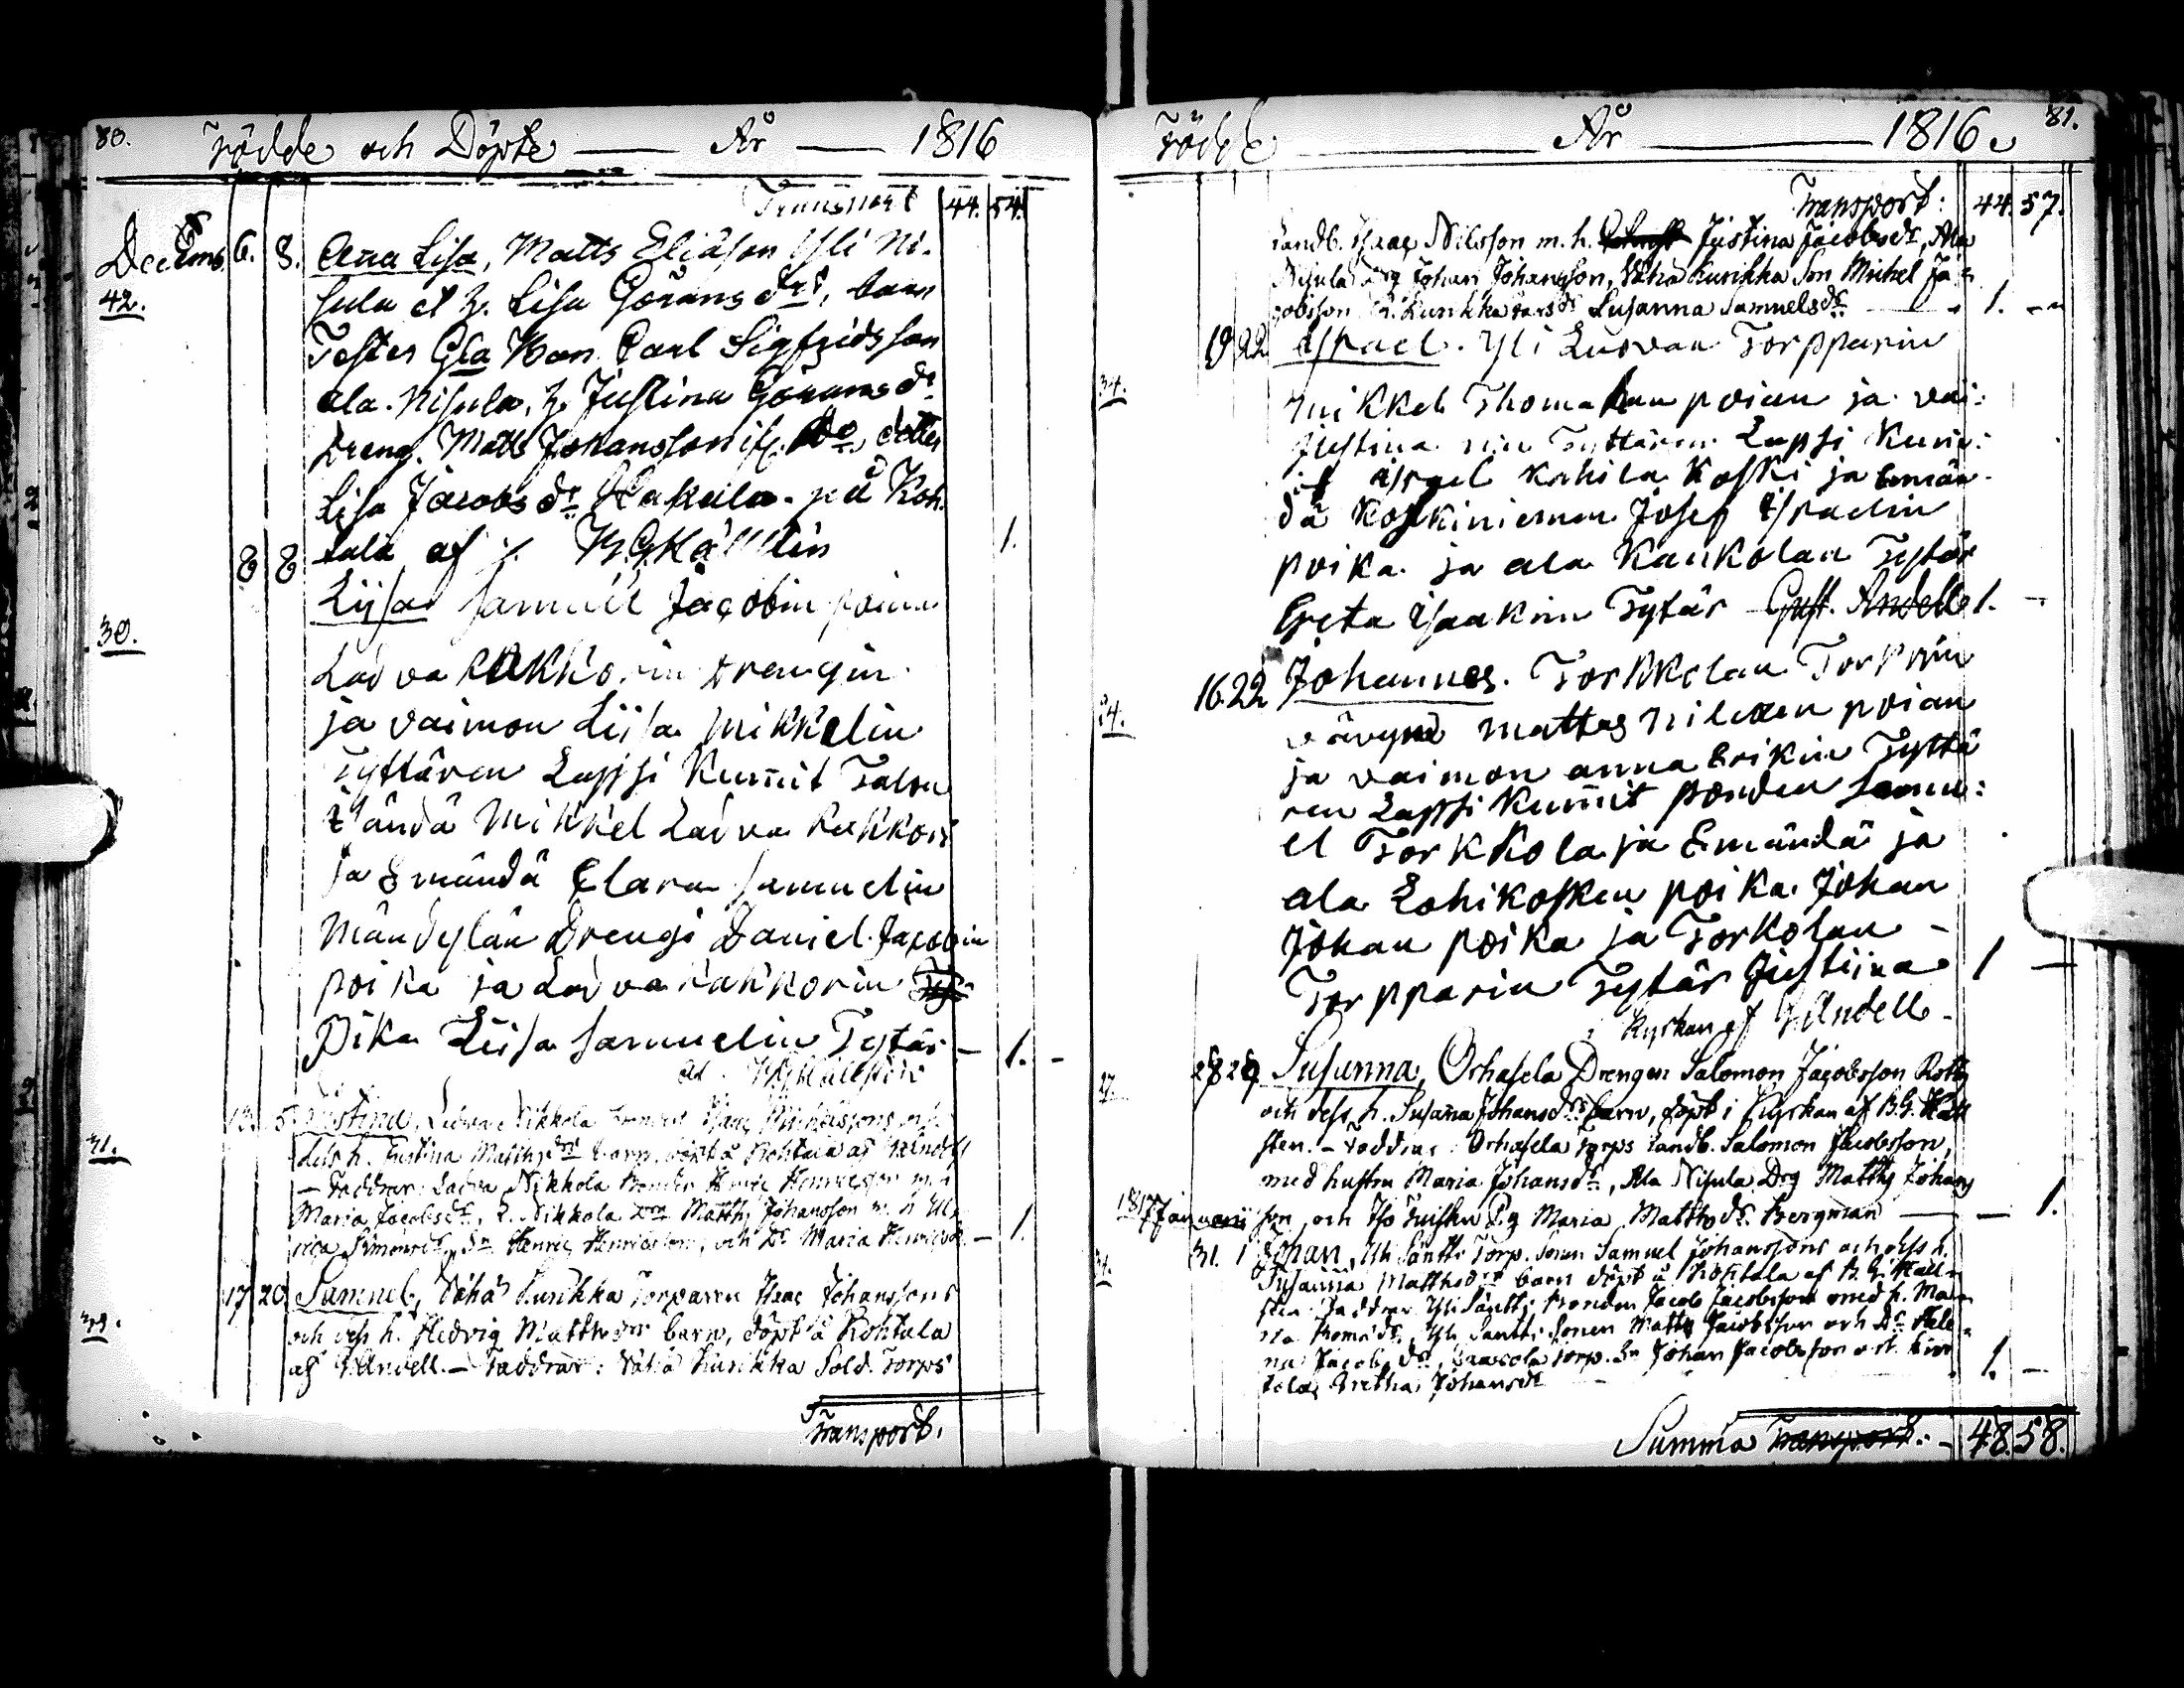 80. Födde och Döpte — År — 1816
Transport 44. 54.
Decemb. 6. 8. Anna Lisa, Matts Eliäson Yli Ni-
42. sula et h. Lisa Görans drs, barn
Testes Gla Bon. Carl Sigfridsson
ala. Nisula, h. Justina Görans dr
Dreng. Matts Johansson
Lisa Jacobs dr på Koh-
tala af 1.
8 8 Liisa Samuel Jacobin poian
30. Ladva Rukkorin drengin
ja vaimon Liisa Mikkelin
Tyttären Lapsi Kum̄it Talon
Isändä Mikkel Ladva Rukkori
ja Emändä Clara Samuelin
Mändylän Drengi Daniel Jacobin
poika ja Ladva Rukkorin
Pika Liisa Samuelin Tytär — 1. -
13. Justina, Ladva Nikkola Isaac Michelssons och
31. dess h. Justina Matths dr barn, döpt å Kohtala af
— Faddrar: Ladva Nikkola Bonden Henric Henricsson m. h.
Maria Jacobsdr, L. Nikkola Matths Johansson m. h. Ul-
rica Simonsdr, Sn Henric Henricsson, och Dr Maria Henricsdr — 1.
17 20. Samuel, Vähä Kurikka Torparen Isaac Johanssons
och dess h. Hedvig Matths drs barn, döpt å Kohtala
af Andell. — Faddrar: Vähä Kurikka Sold. Torps
Transport.
Född År 1816. 81.
Transport: 44. 57.
Landb. Isaac Nilsson m. h. Justina Jacobsdr, Ala
Nisula Drg Johan Johansson, Vähä Kurikka Son Michel Ja-
cobsson V. Kurikka Susanna Samuelsdr - 1. -
19 22 Israel. Yli Luovan Torpparin
34. Mikkel Thomaksan poian ja vai:
Justina Tyttären Lapsi Kum̄:
it Israel Kahila Koski ja Emän-
dä Koskiniemen Josep Israelin
poika ja ala Kaukolan Tytär
Greta Isaakin Tytär Gust. Andelle 1. -
16. 22 Johannes. Torkkolan Torpparin
34. vävyn Mattes poian
ja vaimon anna Erikin Tyttä
ren Lapsi Kum̄it Samu:
el Torkkola ja Emändä ja
ala Lohikosken poika Johan
Johan poika ja Torkolan -
Torpparin Tytär Justiina 1 —
i kyrkan af G. Andell -
28 29 Susanna, Orhasela Drengen Salomon Jacobsson
27. och dess h. Susan̄a Johansdrs barn, döpt i kyrkan af B. G. Käll
sten. — Faddrar: Orhasela torps landb. Salomon Jacobsson,
med hustru Maria Johansdr, Ala Nisula Drg Matths Johans
1817 Januarii son, och Iso Maria Matthsdr Bergman — 1.
31. 1 Johan, Yli Säntti Torp. Sonen Samuel Johanssons och dess h.
Susanna Matths drs barn döpt å Kohtala af B. G. Käll-
sten. Faddrar Yli Säntti Bonden Jacob Jacobsson med h. Ma-
ria Thomædr, Yli Säntti Sonen Matths Jacobsson och Dr Hele-
na Jacobs dr, torp. Sn Johan Jacobsson
Gretha Johansdr 1. -
Summa Transport: - 48. 58.